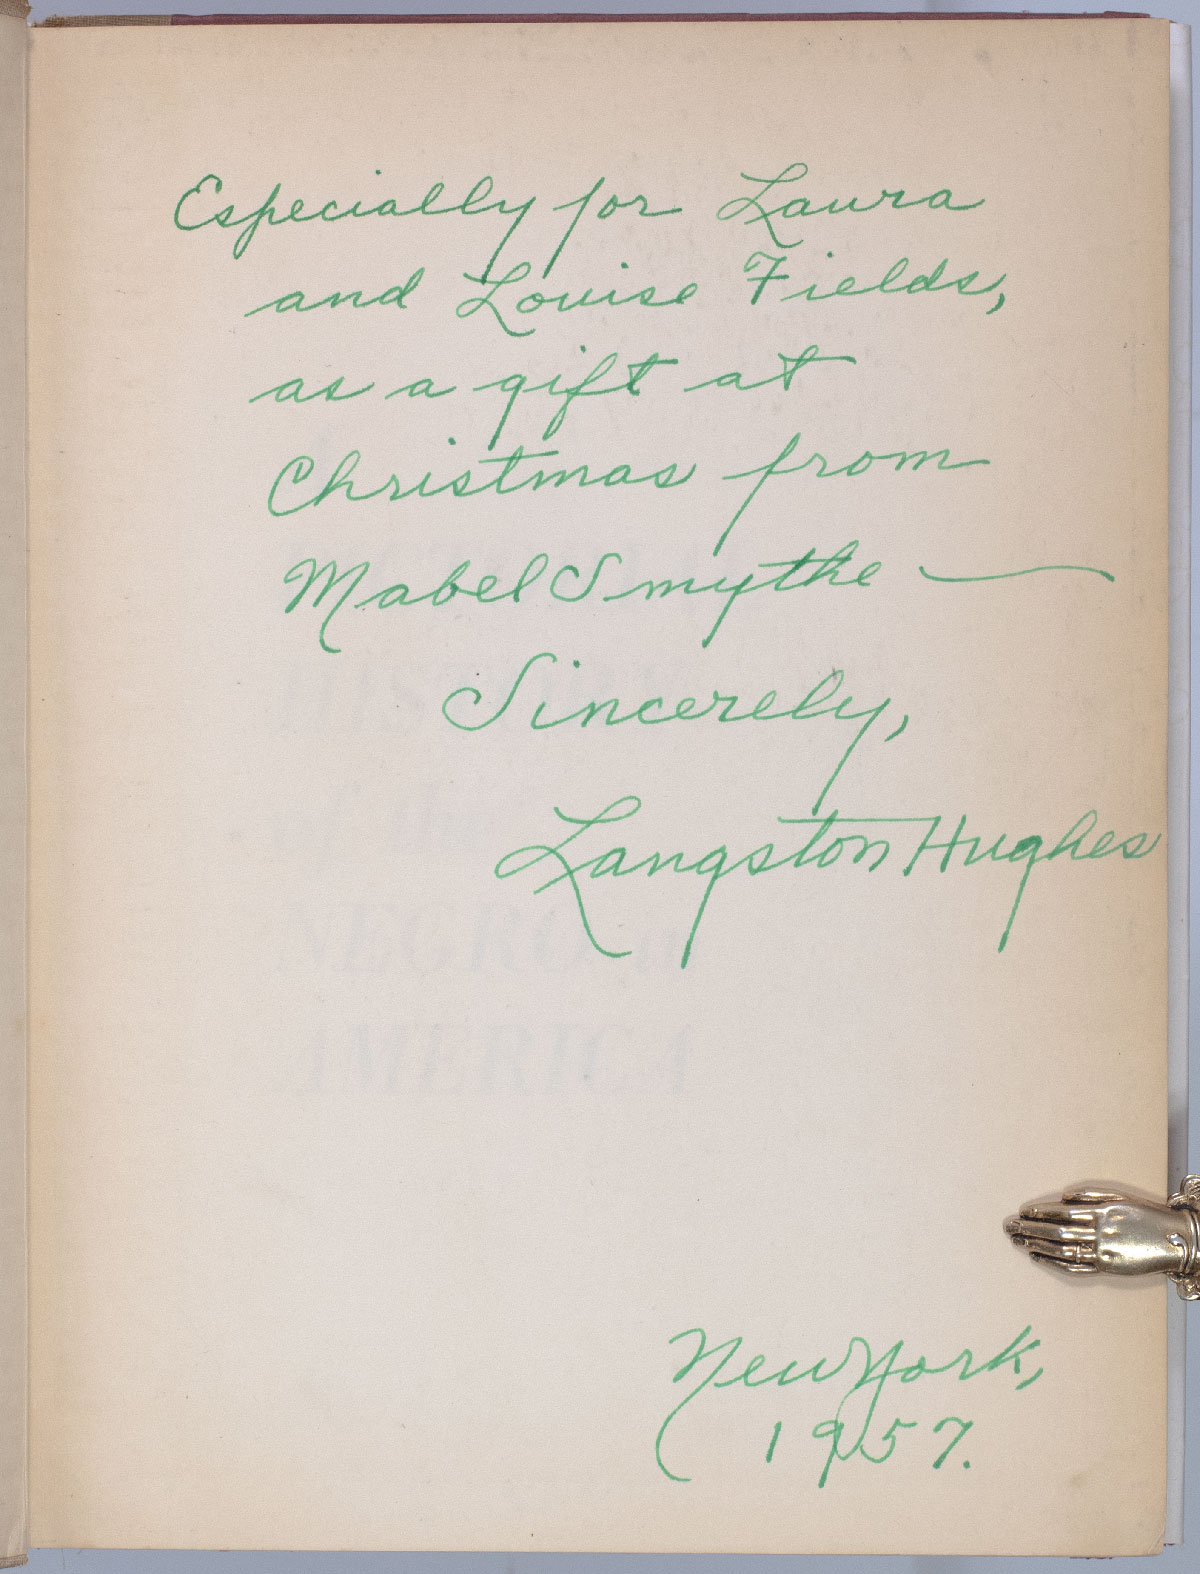 Especially for Laura
and Louise Fields,
as a gift at
Christmas from
Mabel Smythe —
Sincerely,
Langston Hughes
NEGRO in
AMERICA
New York,
1957.